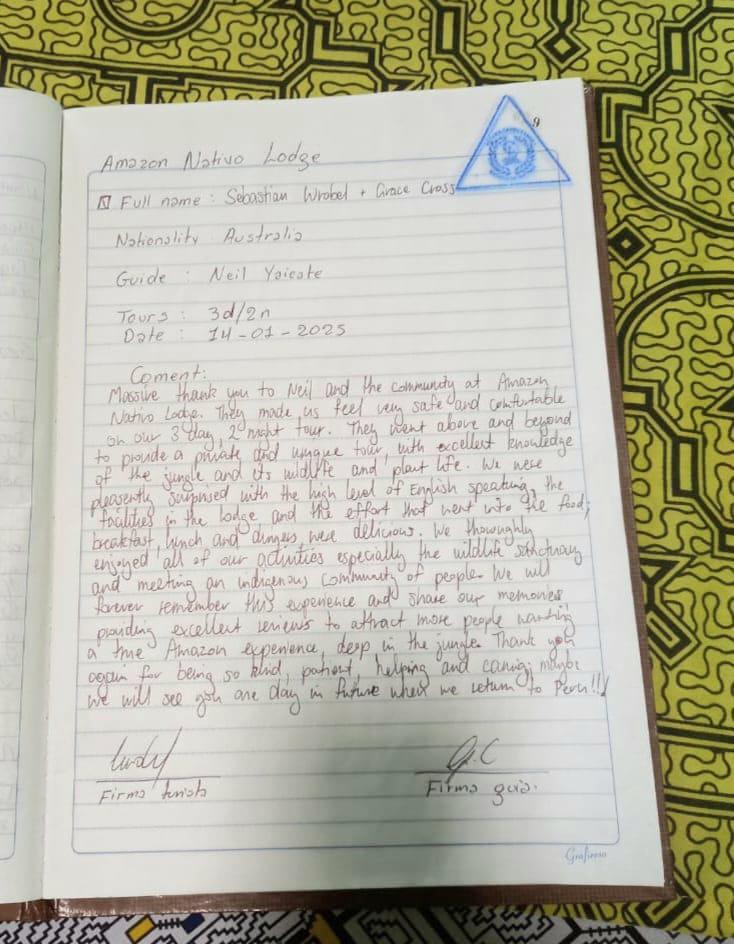 9
Amazon Nativo Lodge
Full name : Sebastian Wrobel + Grace Cross
Nationality Australia
Guide : Neil
Tours : 3d/2n
Date : 14-01-2025
Coment:
Massive thank you to Neil and the community at Amazon
Nativo Lodge. They made us feel very safe and comfortable
on our 3 day, 2 night tour. They went above and beyond
to provide a private and unique tour, with excellent knowledge
of the jungle and its wildlife and plant life. We were
pleasently surprised with the high level of English speaking, the
facilities in the lodge and the effort that went into the food;
breakfast, lunch and dinners were delicious. We thoroughly
enjoyed all of our activities especially the wildlife sanctuary
and meeting an indigenous community of people. We will
forever remember this experience and share our memories
providing excellent reviews to attract more people wanting
a true Amazon experience, deep in the jungle. Thank you
again for being so kind, patient, helping and caring; maybe
we will see you one day in future when we return to Peru!!!
G.C
Firma turista
Firma guia.